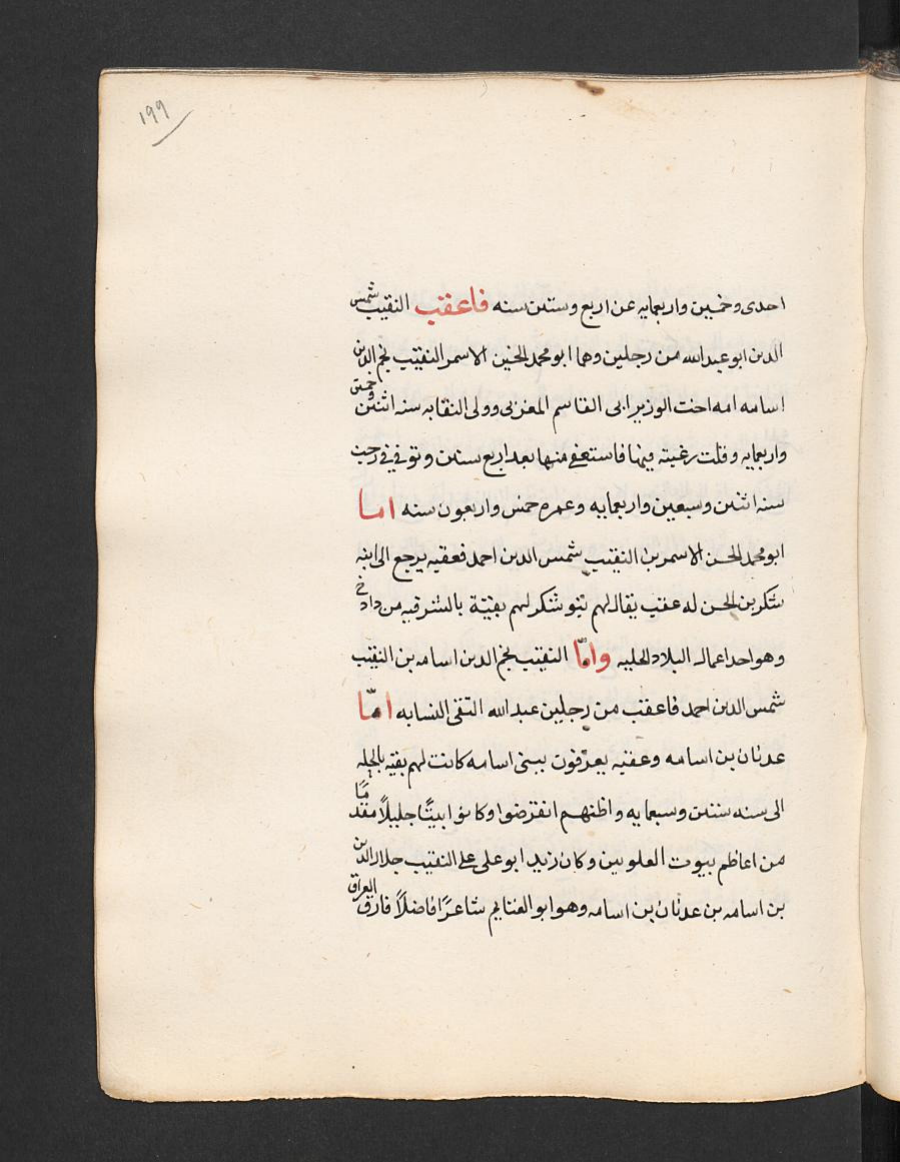 ١٩٩
احدى وخمسين واربعمايه عن اربع وستين سنه فاعقب النقيب شمس
الدين ابو عبدالله من رجلين وهما ابو محمد الحسن الاسمر النقيب نجم الدين
اسامه امه اخت الوزير ابى القاسم المغربى وولى النقابه سنه اثنتين وخمسين
واربعمايه وقلت رغبته فيها فاستعفى منها بعد اربع سنين وتوفى فى رجب
سنه اثنتين وسبعين واربعمايه وعمره خمس واربعون سنه اما
ابو محمد الحسن الاسمر بن النقيب شمس الدين احمد فعقبه يرجع الى ابنه
شكر بن الحسن له عقب يقال لهم بنو شكر لهم بقيّة بالشرفيه من دادخ
وهو احد اعمال البلاد الحليه وامّا النقيب نجم الدين اسامه بن النقيب
شمس الدين احمد فاعقب من رجلين عبد الله التقى النسابه امّا
عدنان بن اسامه وعقبه يعرفون ببنى اسامه كانت لهم بقيه بالحله
الى سنه ستين وسبعمايه واظنهم انقرضوا وكانوا بيتًا جليلاً مقدمًا
من اعاظم بيوت العلويين وكان زيد ابو على على النقيب جلال الدين
بن اسامه بن عدنان بن اسامه وهو ابو الغنايم شاعرًا فاضلاً فارق العراق